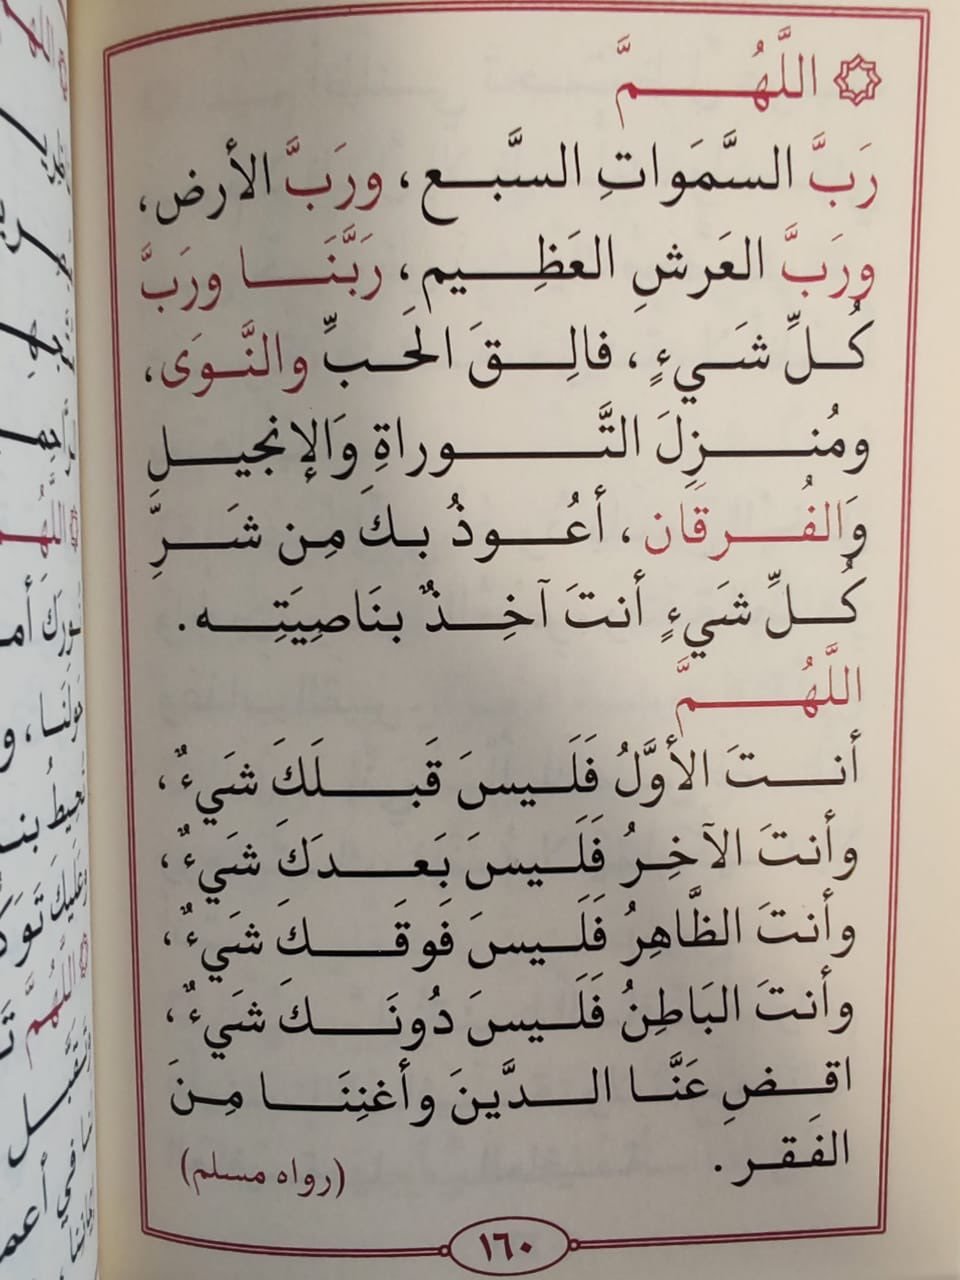 اللَّهُمَّ
رَبَّ السَّمَوَاتِ السَّبع، ورَبَّ الأرض،
ورَبَّ العَرشِ العَظِيم، رَبَّنَا ورَبَّ
كُلِّ شَيءٍ، فالِقَ الحَبِّ والنَّوَى،
ومُنزِلَ التَّوراةِ وَالإنجيلِ
وَالفُرقَان، أعُوذُ بكَ مِن شَرِّ
كُلِّ شَيءٍ أنتَ آخِذٌ بنَاصِيَتِه.
اللَّهُمَّ
أنتَ الأوَّلُ فَلَيسَ قَبلَكَ شَيءٌ،
وأنتَ الآخِرُ فَلَيسَ بَعدَكَ شَيءٌ،
وأنتَ الظَّاهِرُ فَلَيسَ فَوقَكَ شَيءٌ،
وأنتَ البَاطِنُ فَلَيسَ دُونَكَ شَيءٌ،
اقضِ عَنَّا الدَّينَ وأغنِنَا مِنَ
الفَقر.
(رواه مسلم)
١٦٠
اللَّهُمَّ
بنا، و
وعَلَيكَ
اللَّهُمَّ